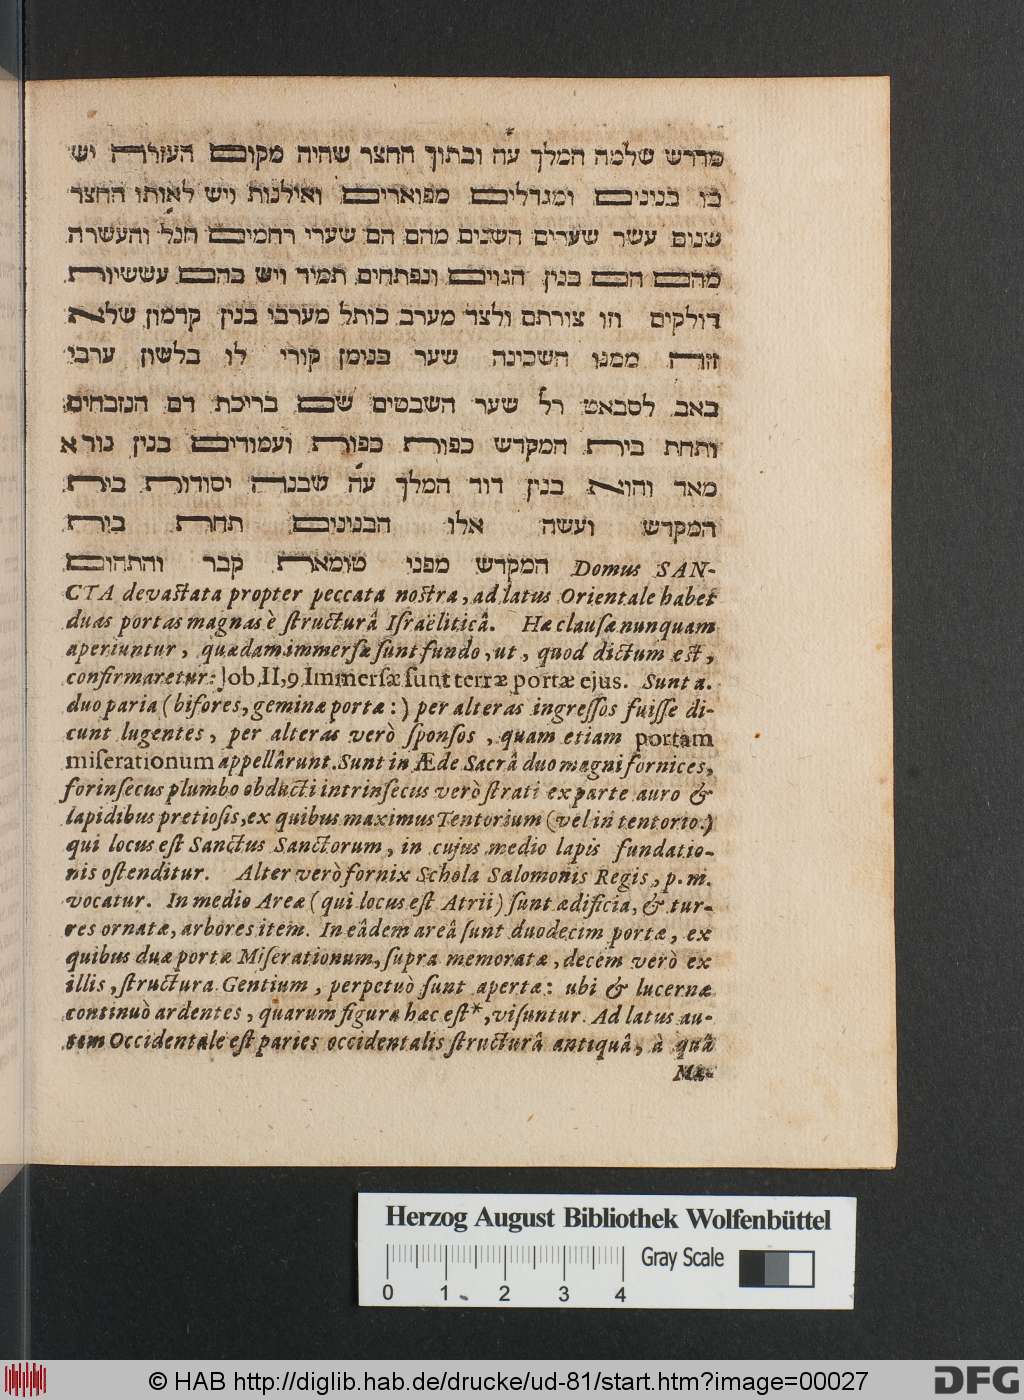 מדרש שלמה המלך ע״ה ובתוך החצר שהיה מקום העזרה יש
בו בנינים ומגדלים מפוארים ואילנות ויש לאותו החצר
שנים עשר שערים השנים מהם הם שערי רחמים הנ״ל והעשרה
מהם הם בנין הגוים ונפתחים תמיד ויש בהם עששיות
דולקים וזו צורתם ולצד מערב כותל מערבי בנין קדמון שלא
זזה ממנו השכינה שער בנימן קורי לו בלשון ערבי
באב לסבאט ר״ל שער השבטים שם בריכת דם הנזבחים
ותחת בית המקדש כפות כפות ועמודים בנין נורא
מאד והוא בנין דוד המלך ע״ה שבנה יסודות בית
המקדש ועשה אלו הבנינים תחת בית
המקדש מפני טומאת קבר והתהום Domus SAN-
CTA devastata propter peccata nostra, ad latus Orientale habet
duas portas magnas è structurâ Israëliticâ. Hæ clausæ nunquam
aperiuntur, quædam immersæ sunt fundo, ut, quod dictum est,
confirmaretur: Job, II, 9, Immersæ sunt terræ portæ ejus. Sunt a.
duo paria (bifores, geminæ portæ:) per alteras ingressos fuisse di-
cunt lugentes, per alteras verò sponsos, quam etiam portam
miserationum appellârunt. Sunt in Æde Sacrâ duo magni fornices,
forinsecus plumbo obducti intrinsecus verò strati ex parte auro &
lapidibus pretiosis, ex quibus maximus Tentorium (vel in tentorio:)
qui locus est Sanctus Sanctorum, in cujus medio lapis fundatio-
nis ostenditur. Alter verò fornix Schola Salomonis Regis, p. m.
vocatur. In medio Areæ (qui locus est Atrii) sunt ædificia, & tur-
res ornatæ, arbores item. In eâdem areâ sunt duodecim portæ, ex
quibus duæ portæ Miserationum, supra memoratæ, decem verò ex
illis, structura Gentium, perpetuò sunt apertæ: ubi & lucernæ
continuò ardentes, quarum figura hæc est*, visuntur. Ad latus au-
tem Occidentale est paries occidentalis structurâ antiquâ, à quâ
Ma-
Herzog August Bibliothek Wolfenbüttel
Gray Scale
0 1 2 3 4
© HAB http://diglib.hab.de/drucke/ud-81/start.htm?image=00027
DFG